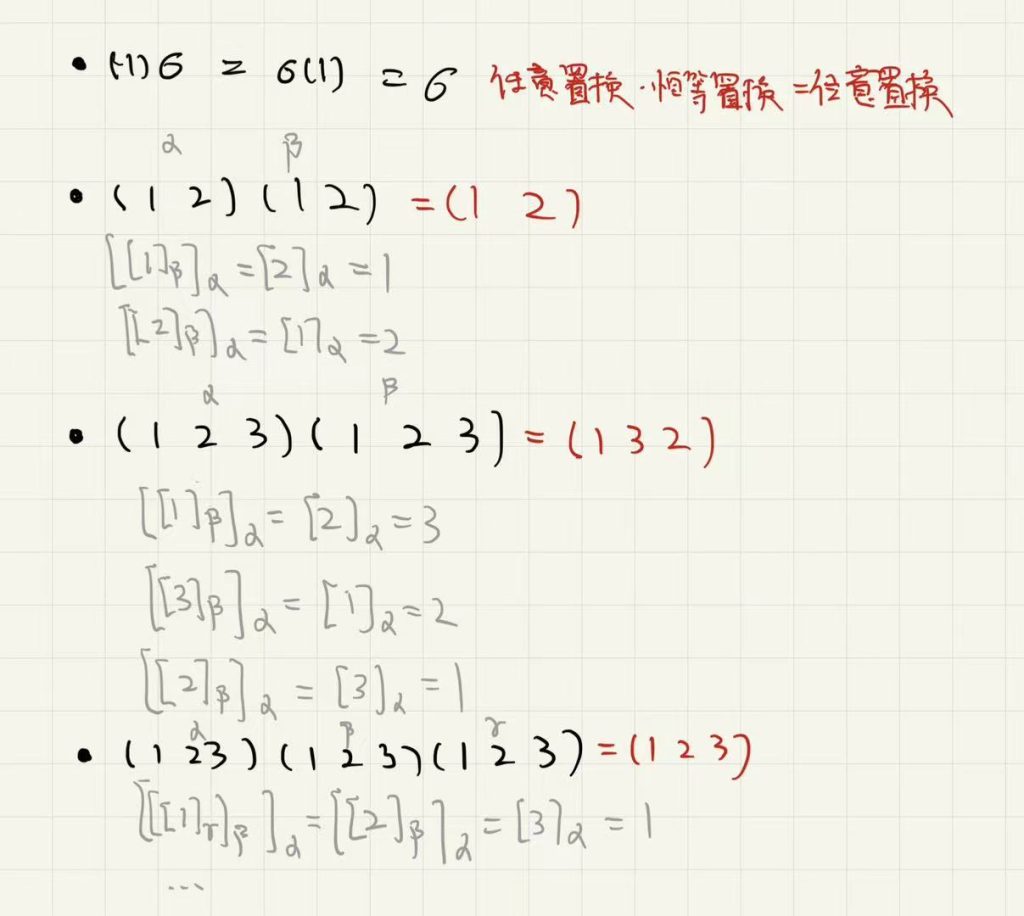 • (1)σ = σ(1) = σ 任意置换·恒等置换=任意置换
α β
• (1 2)(1 2) = (1 2)
[[1]β]α = [2]α = 1
[[2]β]α = [1]α = 2
α β
• (1 2 3)(1 2 3) = (1 3 2)
[[1]β]α = [2]α = 3
[[3]β]α = [1]α = 2
[[2]β]α = [3]α = 1
α β γ
• (1 2 3)(1 2 3)(1 2 3) = (1 2 3)
[[[1]γ]β]α = [[2]β]α = [3]α = 1
...